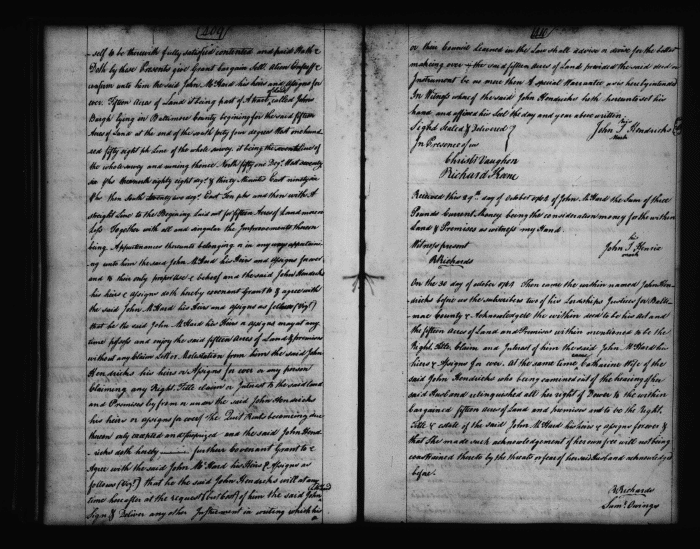 409
self to be therewith fully satisfied contented and paid Hath &
Doth by these Presents give Grant bargain Sell Alien Enfeoff &
confirm unto him the said John McHard his heirs and assigns for
ever Fifteen Acres of Land it being part of A tract of land called Johns
Burgh lying in Baltimore County begining for the said fifteen
Acres of Land at the end of the south fifty four degrees West one hund
red fifty eight ps Line of the whole survey it being the seventh Line of
the whole survey and runing thence North fifty one Degs West seventy
six ps thence north eighty eight degs & thirty Minutes East ninety six
ps then South Seventy two degs East Ten ps and then with A
straight Line to the Begining Laid out for fifteen Acres of Land more or
less Together with all and singular the Improvements thereon
being Appurtenances thereunto belonging or in any ways appertaini
ng unto him the said John McHard his Heirs and Assigns for ever
and to their only proper use & behoof and the said John Hendricks
his heirs & assigns doth hereby covenant Grant to & agree with
the said John McHard his Heirs and Assigns as follows (Vizt)
that he the said John McHard his Heirs or assigns may at any
time possess and enjoy the said fifteen Acres of Land & premises
without any Claim Lett or Molestation from him the said John
Hendricks his heirs or Assigns for ever or any person
Claiming any Right Title claim or Interest to the said land
and Premises by from or under the said John Hendricks
his heirs or assigns for ever the Quit Rents becoming due
thereon only excepted and foreprized and the said John Hend
ricks doth hereby further Covenant Grant to &
Agree with the said John McHard his Heirs & Assigns as
follows (Vizt) that he the said John Hendricks will at any
time hereafter at the request & cost of him the said John
Sign & Deliver any other Instrument in writing which his
410
or their Council Learned in the Law shall advise or devise for the better
making over the said fifteen Acres of Land provided the said deed or
Instrument be no more than A special Warrantee as is hereby intended
In Witness whereof the said John Hendricks hath hereunto set his
hand and affixed his Seal the day and year above written
Signd Sealed & Delivered John his T mark Hendricks
In Presence of us
Christr Vaughon
Richard Rhone
Received this 29th day of October 1764 of John McHard the Sum of three
Pounds Current Money being the consideration money for the within
Land & Premises as witness my Hand
Witness present John his T mark Henric
R Richards
On the 30 day of october 1764 Then came the within named John Hen
dricks before us the subscribers two of his Lordships Justices for Balti
more County & Acknowledged the within deed to be his act and
the fifteen Acres of Land and Premises within mentioned to be the
Right Title Claim and Interest of him the said John McHard his
heirs & Assigns for ever At the same time came Catharine Wife of the
said John Hendricks who being examined out of the hearing of her
said Husband relinquished all her right of Dower to the within
bargained fifteen acres of Land and premises and to be the Right
Title & estate of the said John McHard his heirs & assigns for ever &
that She made such acknowledgement of her own free will not being
constrained thereto by the threats or fear of her said Husband acknowledged
before
R Richards
Saml Owings